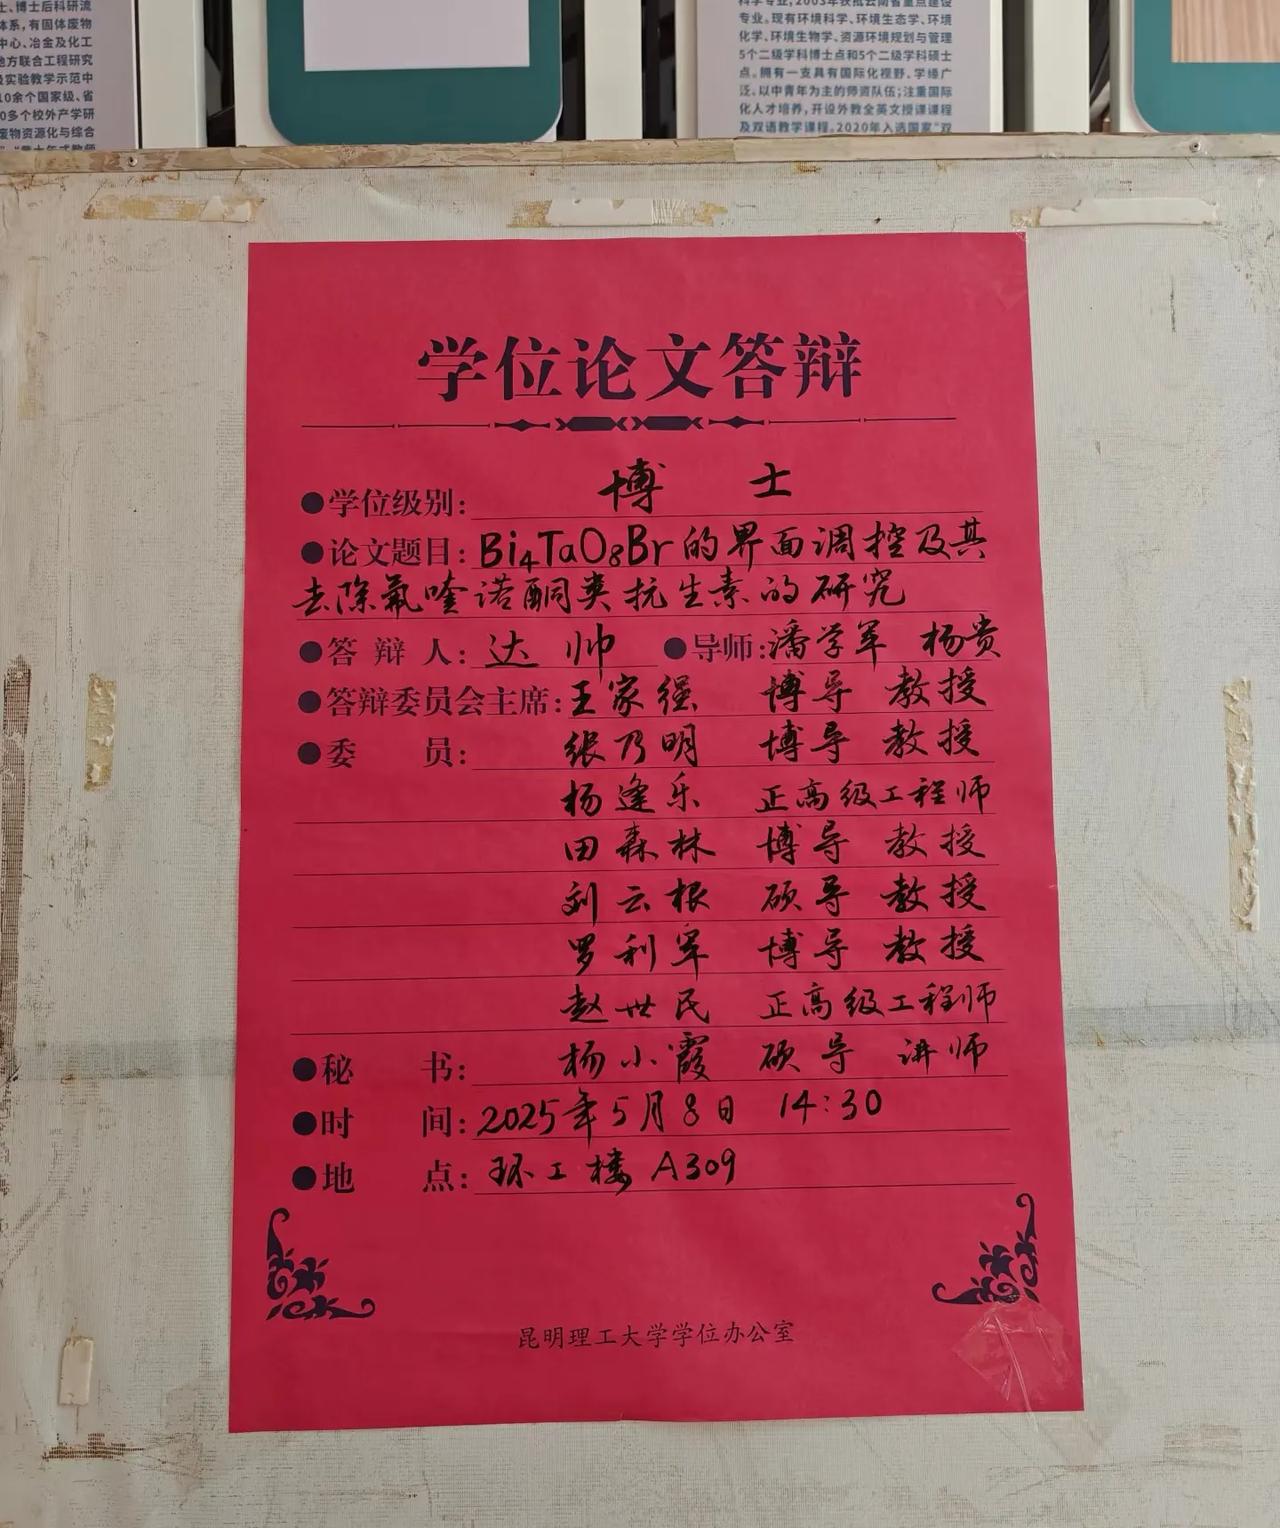 士、博士后科研流
体系，有固体废物
中心、冶金及化工
地方联合工程研究
及实验教学示范中
10余个国家级、省
0多个校外产学研
废物资源化与综合
科学专业，2003年获批云南省重点建设
专业。现有环境科学、环境生态学、环境
化学、环境生物学、资源环境规划与管理
5个二级学科博士点和5个二级学科硕士
点。拥有一支具有国际化视野、学缘广
泛、以中青年为主的师资队伍；注重国际
化人才培养，开设外教全英文授课课程
及双语教学课程。2020年入选国家“双
学位论文答辩
●学位级别：博士
●论文题目：Bi₄TaO₈Br的界面调控及其
去除氟喹诺酮类抗生素的研究
●答辩人：达帅 ●导师：潘学军 杨贵
●答辩委员会主席：王家强 博导 教授
●委员：张乃明 博导 教授
杨逢乐 正高级工程师
田森林 博导 教授
刘云根 硕导 教授
罗利军 博导 教授
赵世民 正高级工程师
●秘书：杨小霞 硕导 讲师
●时间：2025年5月8日 14:30
●地点：环工楼 A309
昆明理工大学学位办公室